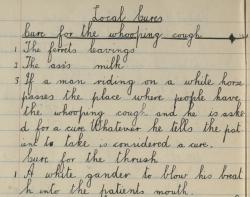 Local Cures
Cure for the whooping cough
1 The ferrets leavings
2 The ass's milk
3 If a man riding on a white horse
passes the place where people have
the whooping cough and he is aske
d for a cure Whatever he tells the pat
ient to take is considered a cure.
Cure for the thrush
1 A white gander to blow his breat
h into the patients mouth.